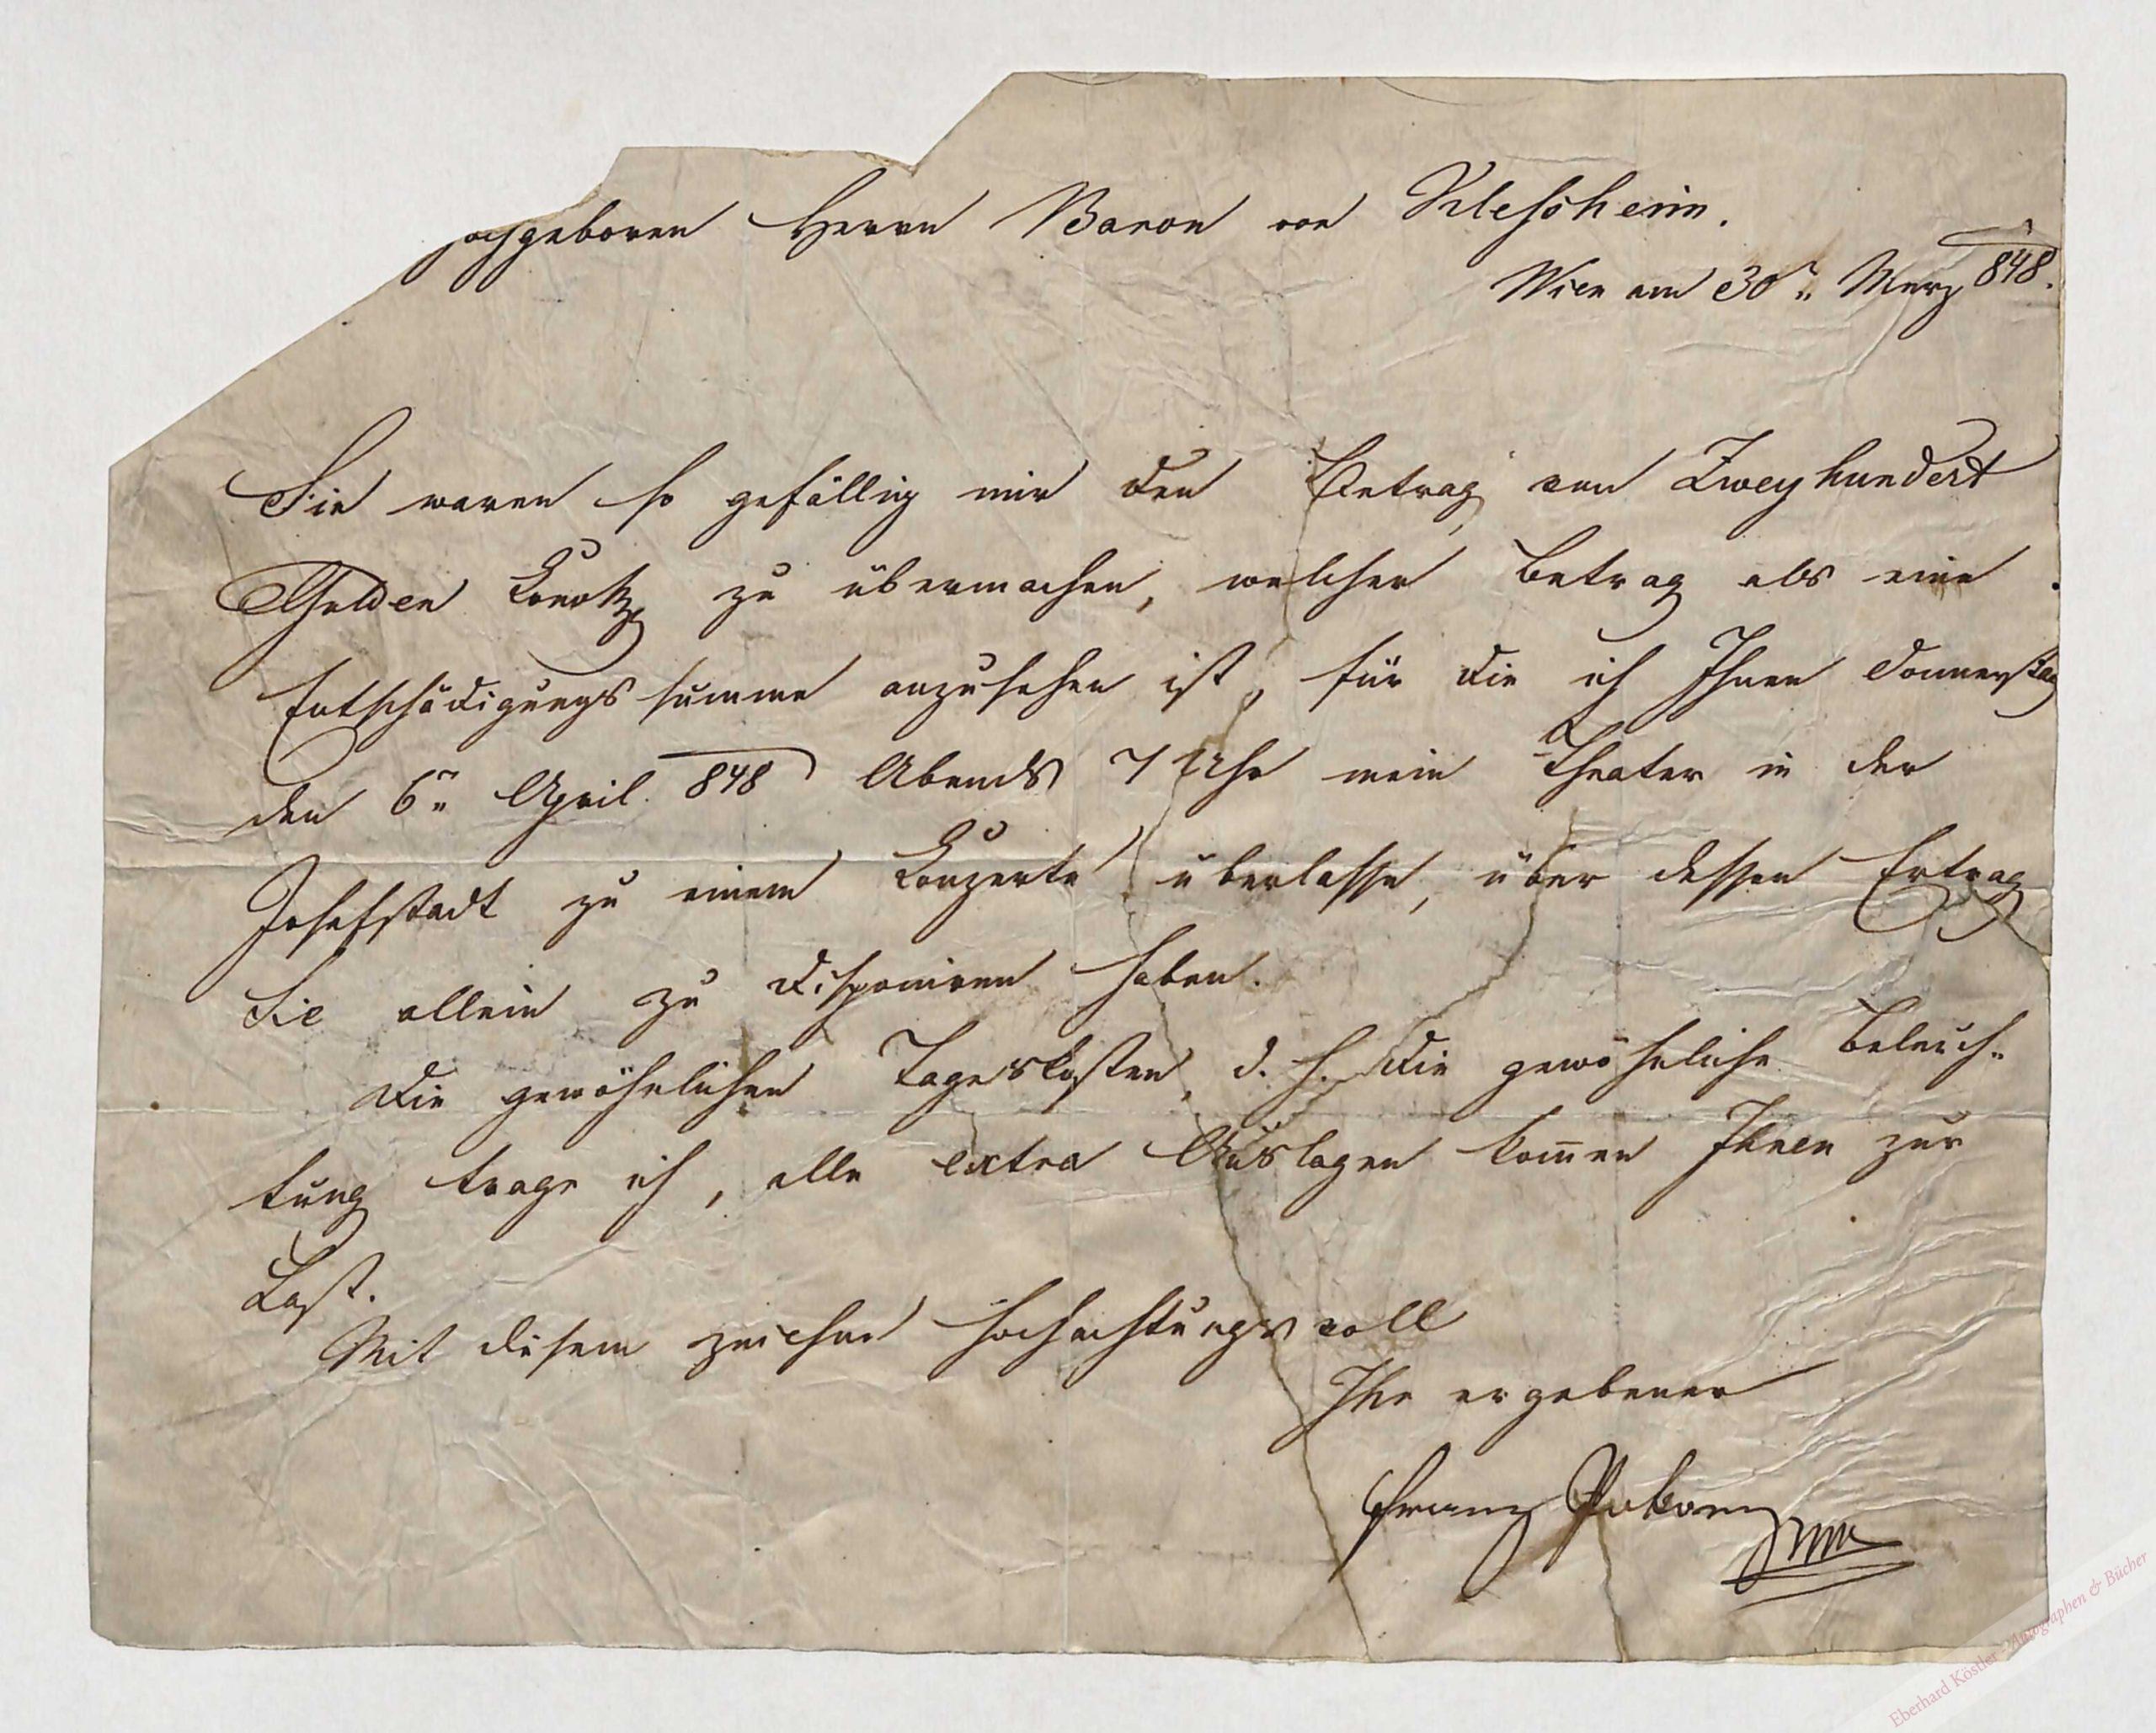 hochgeboren Herrn Baron von Klesheim.
Wien am 30n März 848.
Sie waren so gefällig mir den Betrag von Zweyhundert
Gulden zu übermachen, welcher Betrag als eine
Entschädigungssumme anzusehen ist, für die ich Ihnen Donnerstag
den 6n April 848 Abends 7 Uhr mein Theater in der
Josefstadt zu einem Konzerte überlasse, über dessen Ertrag
Sie allein zu disponiren haben.
Die gewöhnlichen Tageskosten, d. h. die gewöhnliche Beleuch-
tung trage ich, alle extra Auslagen kom̅en Ihnen zur
Last.
Mit diesem zeichne hochachtungsvoll
Ihr ergebener
Franz Pokorny
Eberhard Köstler - Autographen & Bücher